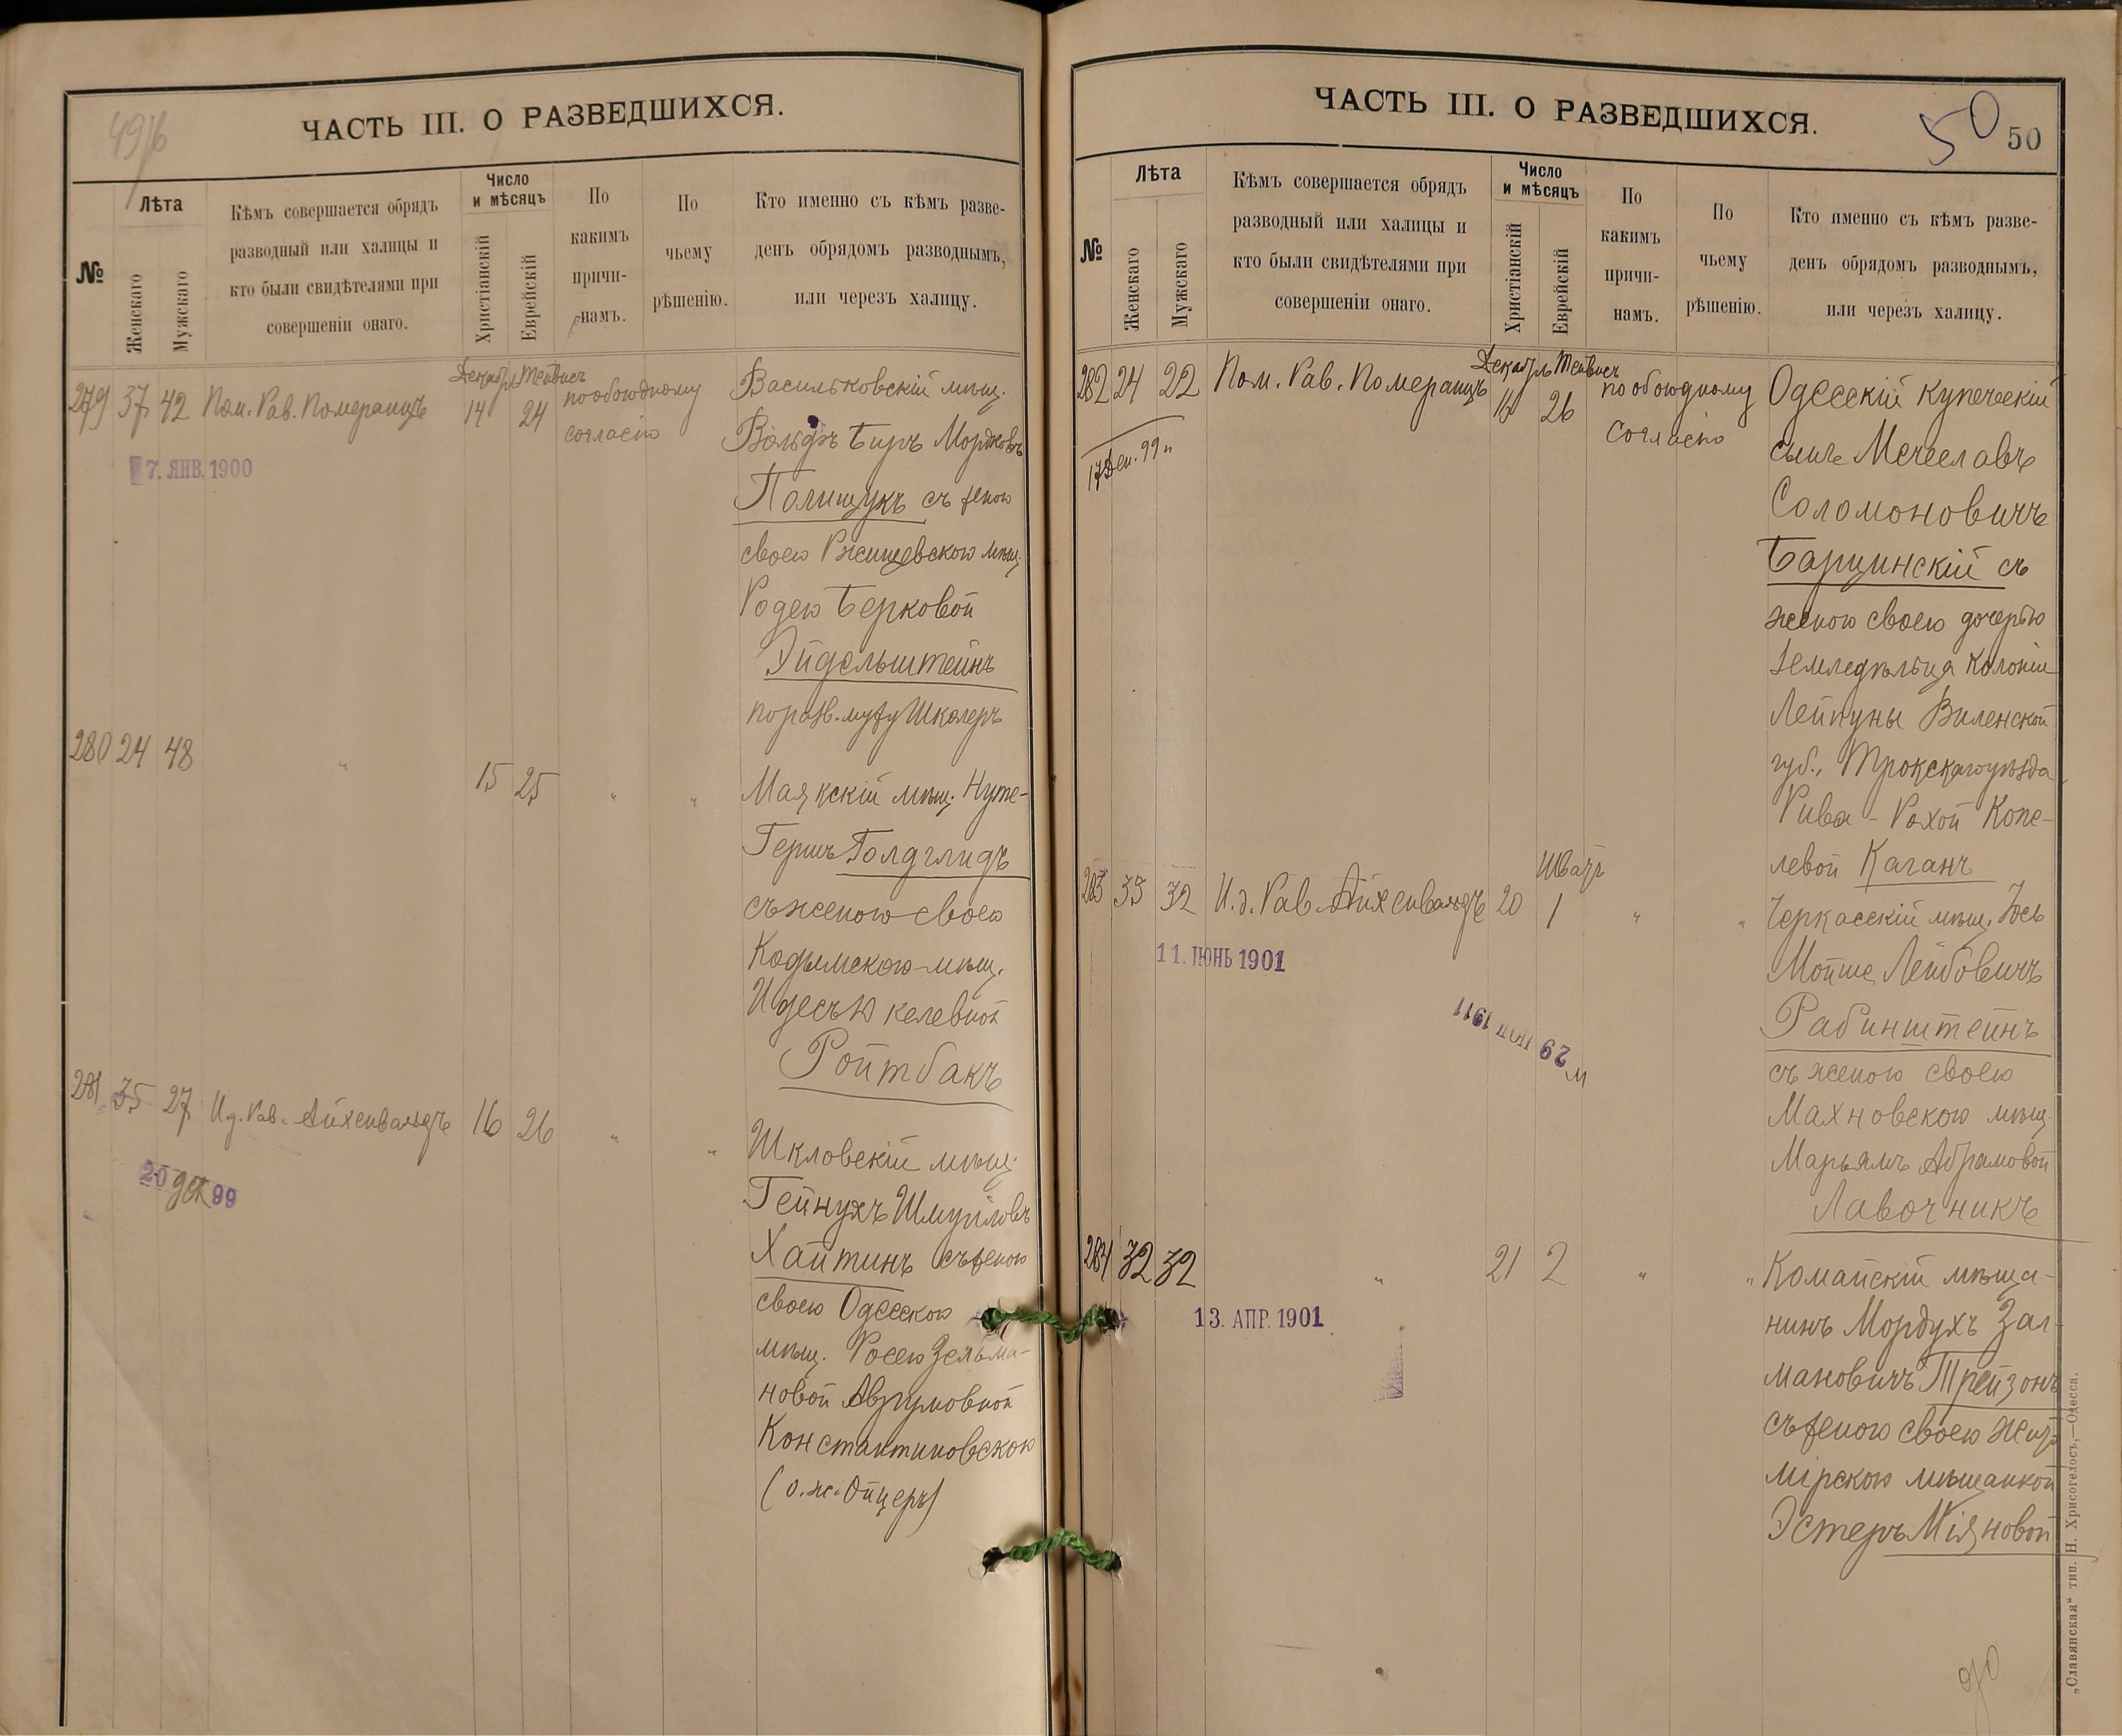 49/б
ЧАСТЬ III. О РАЗВЕДШИХСЯ.
№
Лѣта
Женскаго
Мужскаго
Кѣмъ совершается обрядъ
разводный или халицы и
кто были свидѣтелями при
совершеніи онаго.
Число
и мѣсяцъ
Христіанскій
Еврейскій
По
какимъ
причи-
намъ.
По
чьему
рѣшенію.
Кто именно съ кѣмъ разве-
денъ обрядомъ разводнымъ,
или черезъ халицу.
Декабрь Тейвисъ
279 37 42 Пом. Рав. Померанцъ 14 24 по обоюдному
согласію
7. ЯНВ. 1900
Васильковскій мѣщ.
Вольфъ Беръ Мордковъ
Полищукъ съ женою
своею Ржищевскою мѣщ.
Родею Берковой
Эйдельштейнъ
по разв. мужу Школеръ
280 24 48 " 15 25 " "
Маякскій мѣщ. Нуте-
Гершъ Голдглидъ
съ женою своею
Кодымскою мѣщ.
Идесъ Юкелевной
Ройтбакъ
281 35 27 И. д. Рав. Айхенвальдъ 16 26 " "
20 дек 99
Шкловскій мѣщ.
Гейнухъ Шмуйловъ
Хайтинъ съ женою
своею Одесскою
мѣщ. Росею Зельма-
новой Аврумовной
Константиновскою
(о. ж. Ойцеръ)
ЧАСТЬ III. О РАЗВЕДШИХСЯ.
50 50
№
Лѣта
Женскаго
Мужскаго
Кѣмъ совершается обрядъ
разводный или халицы и
кто были свидѣтелями при
совершеніи онаго.
Число
и мѣсяцъ
Христіанскій
Еврейскій
По
какимъ
причи-
намъ.
По
чьему
рѣшенію.
Кто именно съ кѣмъ разве-
денъ обрядомъ разводнымъ,
или черезъ халицу.
Декабрь Тейвисъ
282 24 22 Пом. Рав. Померанцъ 16 26 по обоюдному
согласію
17 Дек. 99 г
Одесскій купеческій
сынъ Мечеславъ
Соломоновичъ
Барцинскій съ
женою своею дочерью
земледѣльца колоніи
Лейпуны Виленской
губ., Трокскаго уѣзда
Рива-Рохой Копе-
левой Каганъ
Шватъ
283 35 32 И. д. Рав. Айхенвальдъ 20 1 " "
11. ІЮНЬ 1901
29 ІЮЛ 1911
Черкасскій мѣщ. Іось
Мойше Лейбовичъ
Рабинштейнъ
съ женою своею
Махновскою мѣщ.
Марьямъ Абрамовой
Лавочникъ
284 32 32 " 21 2 " "
13. АПР. 1901
Комайскій мѣща-
нинъ Мордухъ Зал-
мановичъ Трейзонъ
съ женою своею Жито-
мірскою мѣщанкой
Эстеръ Міяновой
„Славянская“ тип. Н. Хрисогелосъ,—Одесса.